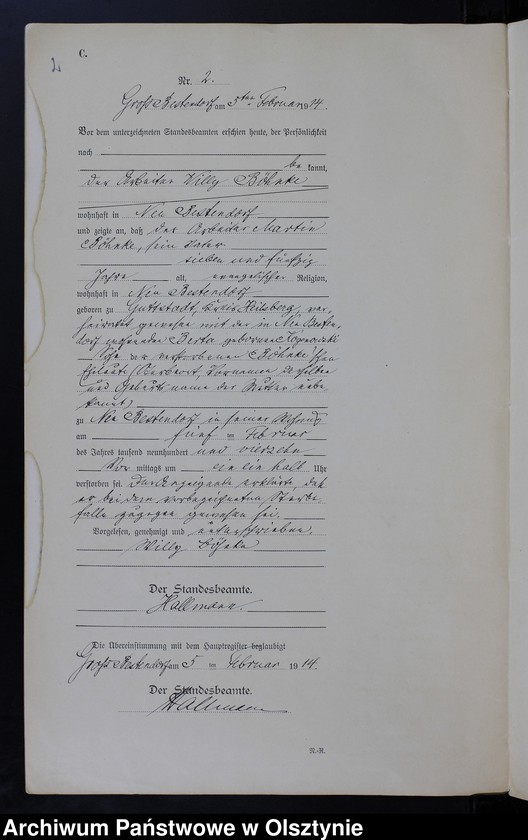 2
C.
Nr. 2.
Groß Bestendorf am 5ten Februar 1914.
Vor dem unterzeichneten Standesbeamten erschien heute, der Persönlichkeit
nach
be kannt,
der Arbeiter Willy Böhnke
wohnhaft in Neu Bestendorf
und zeigte an, daß der Arbeiter Martin
Böhnke, sein Vater
sieben und fünfzig
Jahre alt, evangelischer Religion,
wohnhaft in Neu Bestendorf
geboren zu Guttstadt, Kreis Heilsberg, ver-
heiratet gewesen mit der in Neu Besten-
dorf wohnenden Berta geborenen
Sohn der verstorbenen Böhnke'schen
Eheleute Vornamen derselben
und Geburtsname der Mutter unbe-
kannt)
zu Neu Bestendorf in seiner Wohnung
am fünf ten Februar
des Jahres tausend neunhundert und vierzehn
Vor mittags um ein ein halb Uhr
verstorben sei. Der Anzeigende erklärte, daß
er bei dem vorbezeichneten Sterbe-
falle zugegen gewesen sei.
Vorgelesen, genehmigt und unterschrieben.
Willy Böhnke
Der Standesbeamte.
Hallmann.
Die Übereinstimmung mit dem Hauptregister beglaubigt
Groß Bestendorf am 5 ten Februar 1914.
Der Standesbeamte.
Hallmann
N.-R.
Archiwum Państwowe w Olsztynie